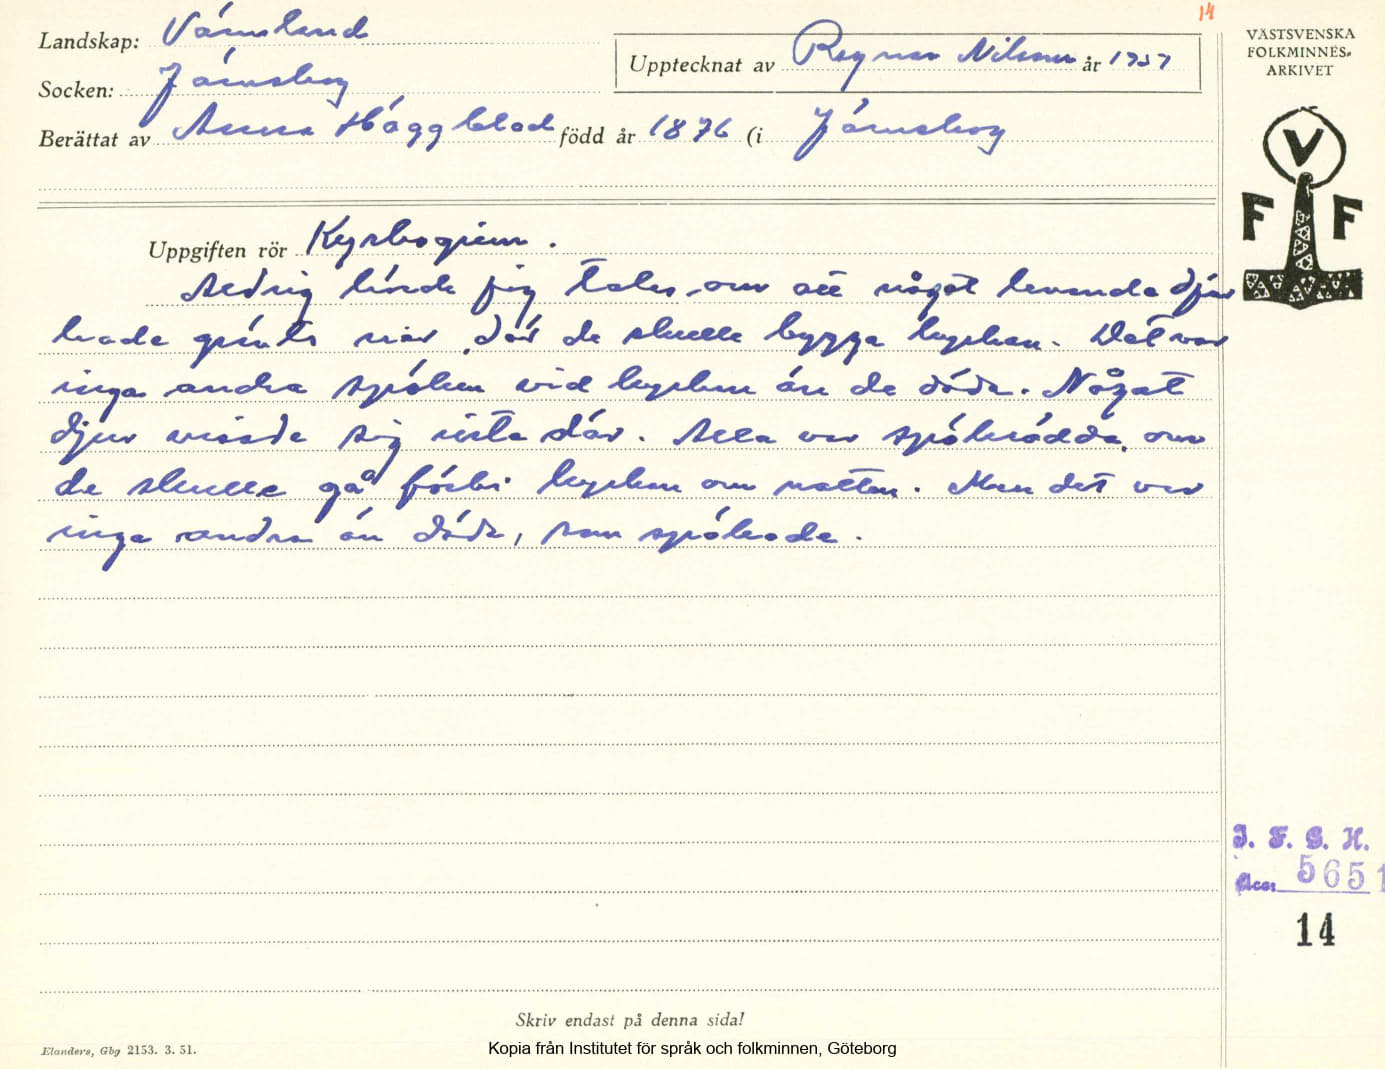 14
Landskap: Värmland
Socken: Järnskog
Upptecknat av Ragnar Nilsson år 1957
Berättat av Anna Häggblad född år 1876 (i Järnskog
VÄSTSVENSKA
FOLKMINNES-
ARKIVET
V
F F
Uppgiften rör Kyrkogrim.
Aldrig hörde jag talas om att något levande djur
hade grävts ner där de skulle bygga kyrkan. Det var
inga andra spöken vid kyrkan än de döda. Något
djur visade sig inte där. Alla var spökrädda, om
de skulle gå förbi kyrkan om natten. Men det var
inga andra än döda, som spökade.
I. F. G. H.
Acc. 5651
14
Skriv endast på denna sida!
Elanders, Gbg 2153. 3. 51.
Kopia från Institutet för språk och folkminnen, Göteborg